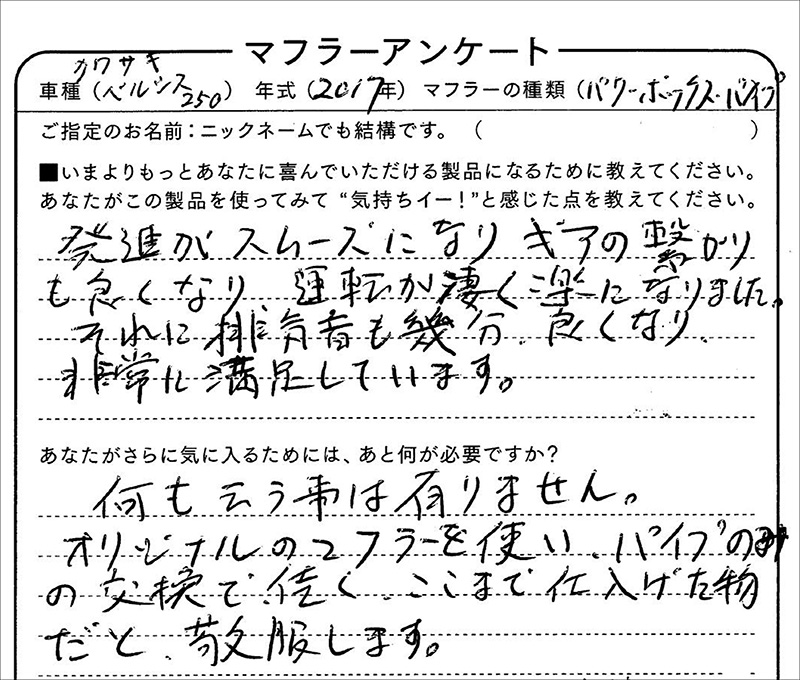 マフラーアンケート
カワサキ
車種（ベルシス250） 年式（2017年） マフラーの種類（パワーボックスパイプ
ご指定のお名前：ニックネームでも結構です。（ ）
■いまよりもっとあなたに喜んでいただける製品になるために教えてください。
あなたがこの製品を使ってみて“気持ちイー！”と感じた点を教えてください。
発進がスムーズになりギアの繋がり
も良くなり、運転が凄く楽になりました。
それに排気音も幾分、良くなり、
非常に満足しています。
あなたがさらに気に入るためには、あと何が必要ですか？
何も云う事は有りません。
オリジナルのマフラーを使い、パイプのみ
の交換で、佳く、ここまで仕入げた物
だと、敬服します。